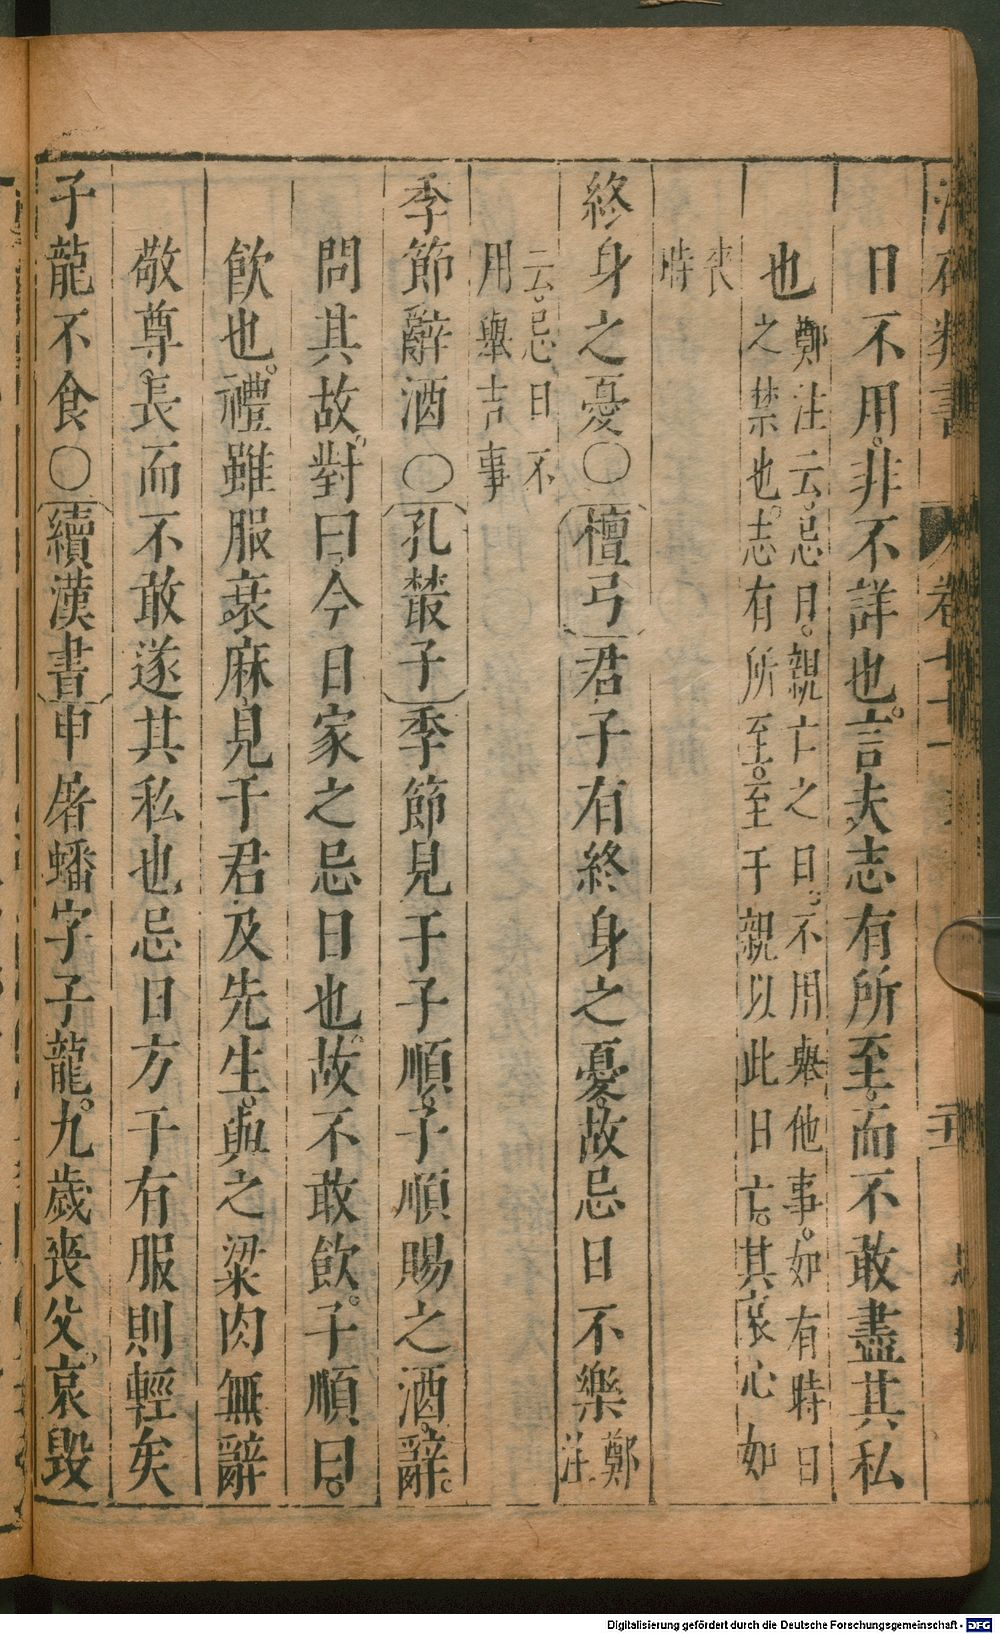 日不用。非不詳也。言夫志有所至。而不敢盡其私
也鄭注云。忌日。親亡之日。不用舉他事。如有時日
之禁也。志有所至。至于親以此日亡。其哀心如
喪
時
終身之憂○檀弓君子有終身之憂。故忌日不樂鄭
注
云。忌日不
用舉吉事
季節辭酒○孔叢子季節見于子順。子順賜之酒。辭。
問其故。對曰。今日家之忌日也。故不敢飲。子順曰。
飲也。禮雖服衰麻見于君及先生。與之粱肉無辭
敬尊。長而不敢遂其私也忌日方于有服則輕矣
子龍不食○續漢書申屠蟠字子龍。九歲喪父。哀毀
Digitalisierung gefördert durch die Deutsche Forschungsgemeinschaft - DFG